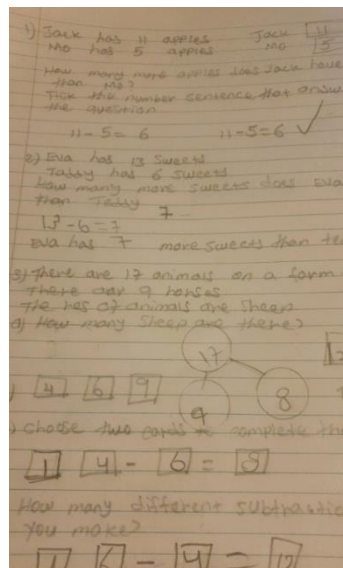 1) Jack has 11 apples Jack 11
Mo has 5 apples Mo 5
How many more apples does Jack have
than Mo?
Tick the number sentence that answ
the question
11-5= 6 11-5=6 ✓
2) Eva has 13 sweets
Tabby has 6 sweets
How many more sweets does Eva
than Teddy
7
13-6=7
Eva has 7 more sweets than te
3) There are 17 animals on a farm
There aar 9 horses
The res of animals are Sheep
a) How many Sheep are there?
17
9 8
4 6 9
) Choose two cards to complete the
1 4 - 6 = 8
How many different subtractio
you make?
1 6 - 4 = 12